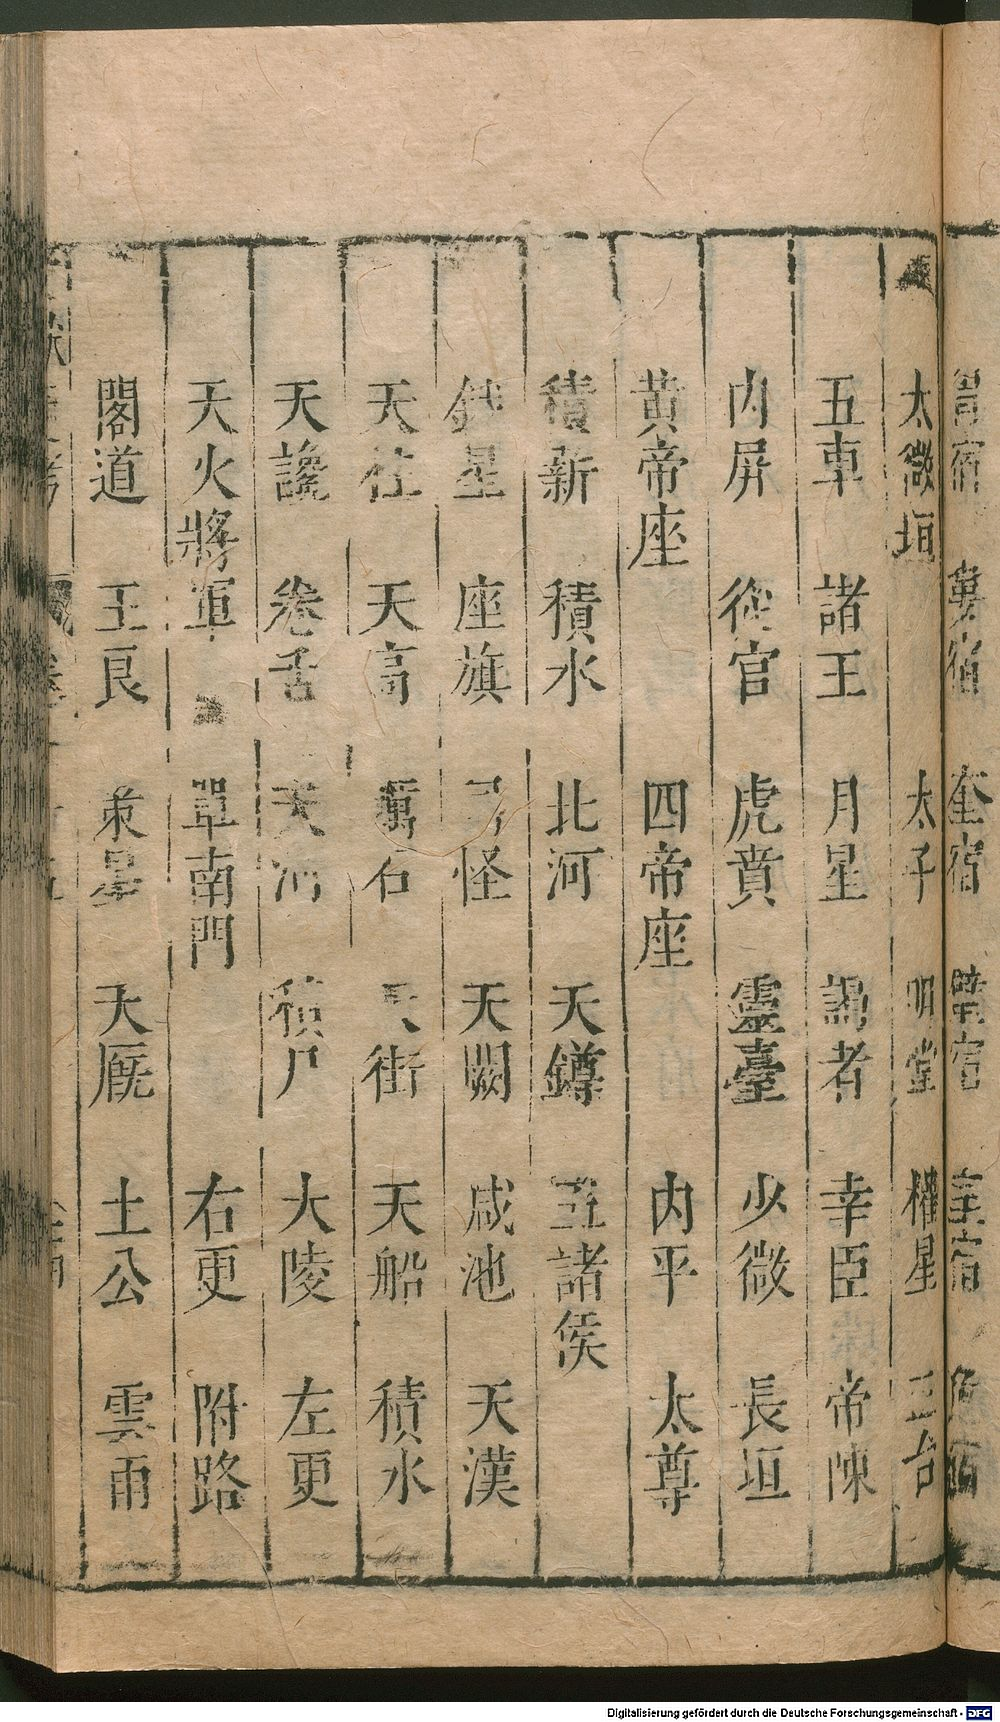 胃宿 婁宿 奎宿 壁宿 室宿 危宿
太微垣 太子 明堂 權星 三台
五車 諸王 月星 謁者 幸臣 帝陳
內屏 從官 虎賁 靈臺 少微 長垣
黃帝座 四帝座 內平 太尊
積薪 積水 北河 天鐏 五諸侯
鉞星 座旗 司怪 天闕 咸池 天漢
天柱 天高 礪石 天街 天船 積水
天讒 卷舌 天河 積尸 大陵 左更
天火將軍 軍南門 右更 附路
閣道 王良 策星 天厩 土公 雲雨
Digitalisierung gefördert durch die Deutsche Forschungsgemeinschaft - DFG